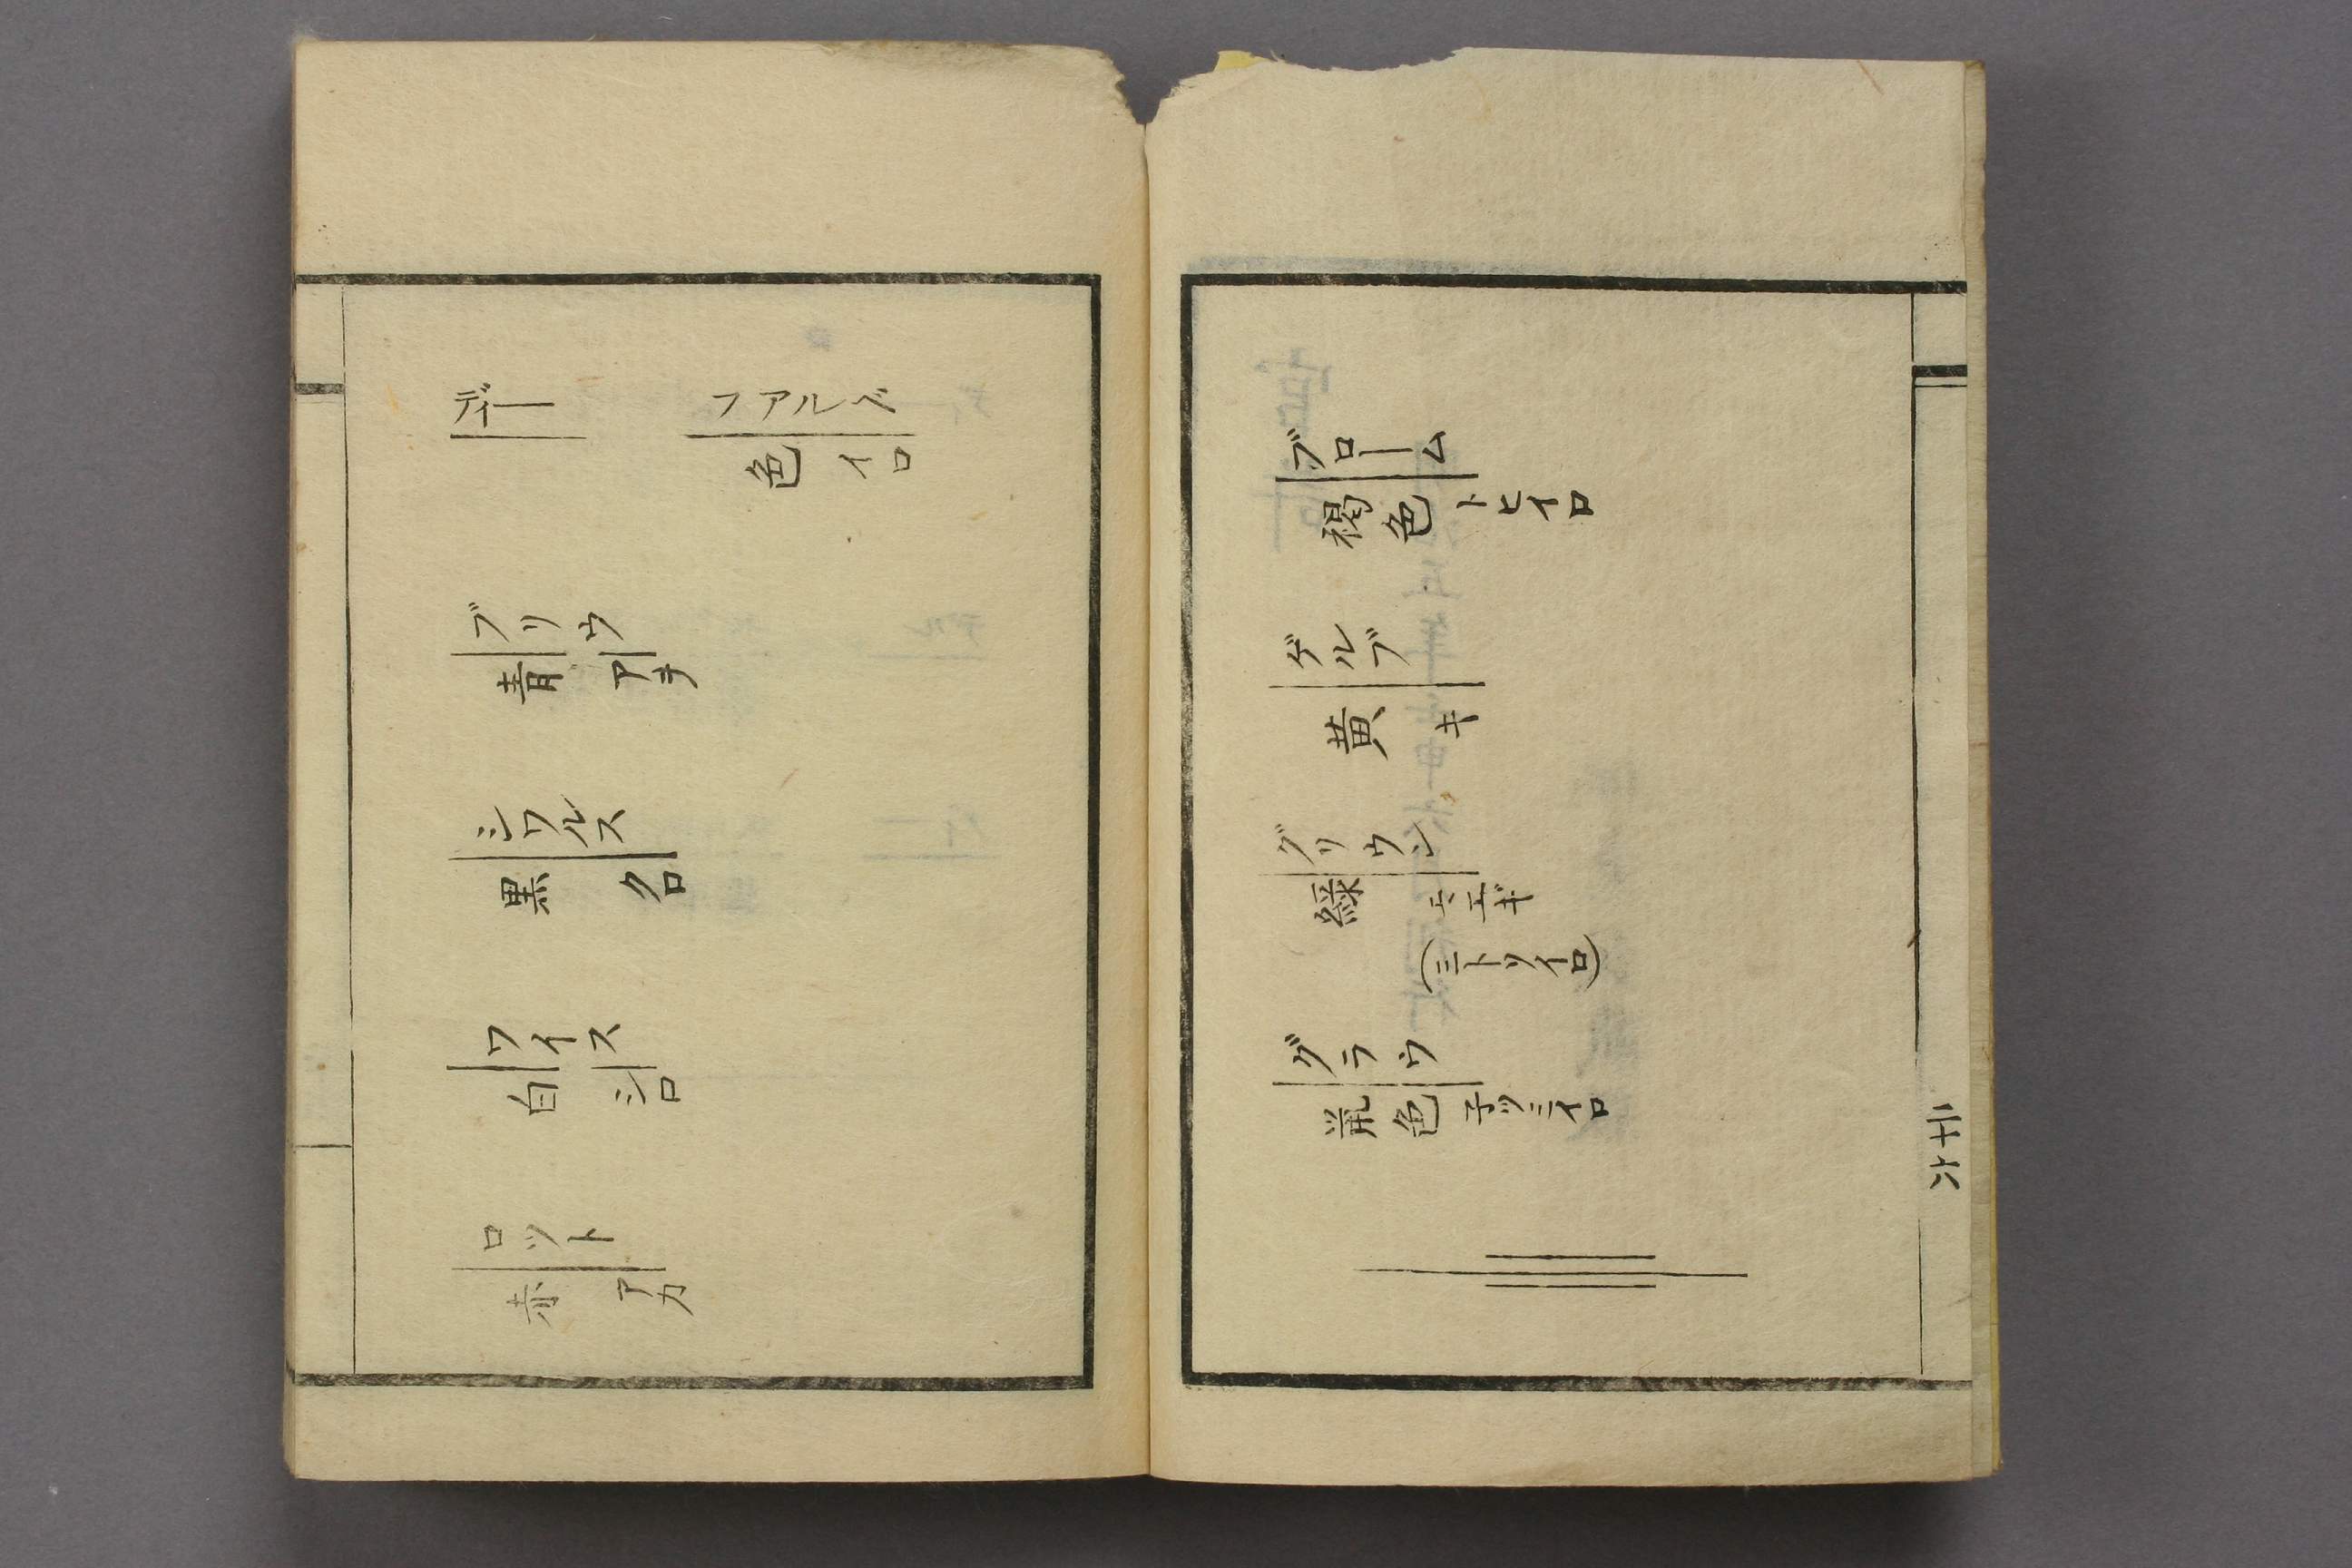 ディー フアルベ
色 イロ
ブリウ
青 アヲ
シワルス
黒 クロ
ワイス
白 シロ
ロツト
赤 アカ
ブローム
褐色 トヒイロ
ゲルブ
黄 キ
グリウン
緑 モエギ
(ミトリイロ)
グラウ
鼠色 子ツミイロ